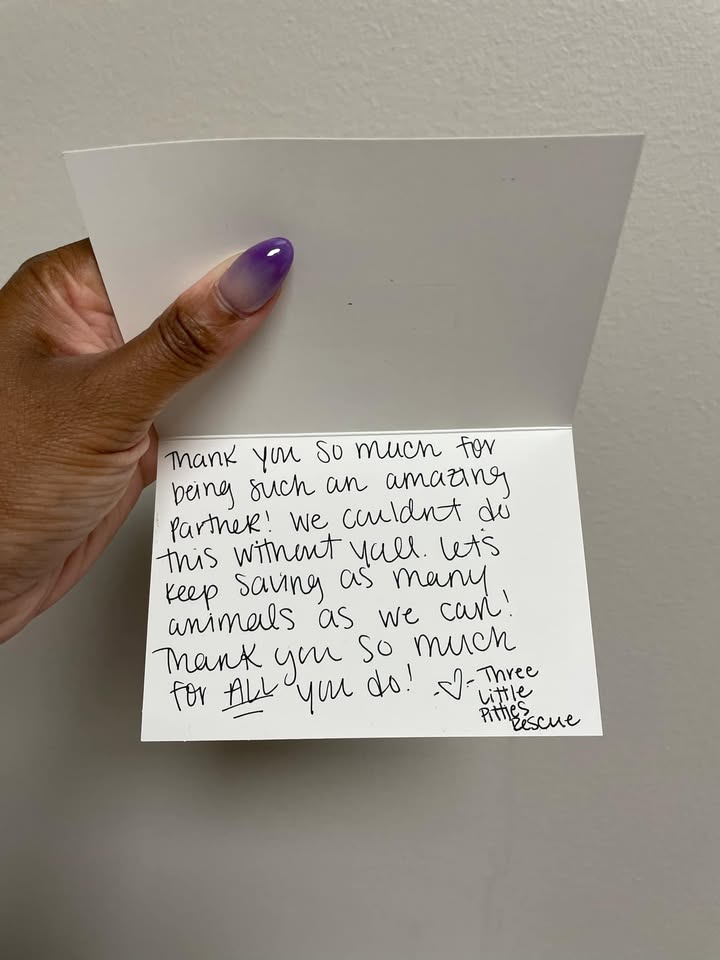 Thank you so much for
being such an amazing
Partner! We couldnt do
this without yall. Let's
keep saving as many
animals as we can!
Thank you so much
for ALL you do! ♡- Three
Little
Pitties
Rescue